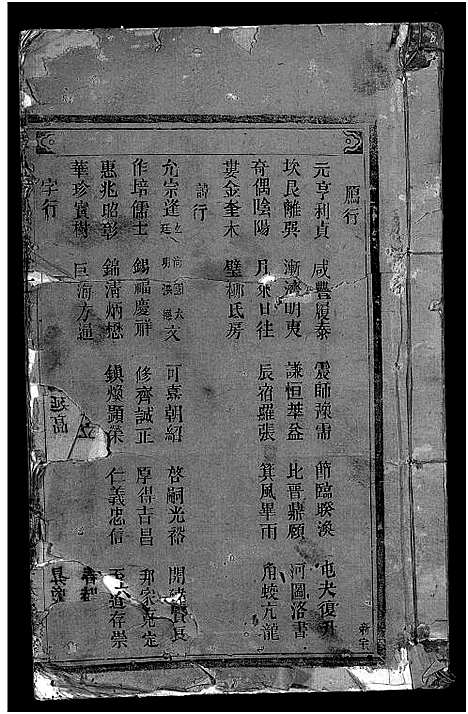 鴈行
元亨利貞 咸豐履泰 震師豫需 節臨睽渙 屯夬復
坎艮離巽 漸濟明夷 謙恒萃益 比晉鼎頤 河圖洛書
奇偶陰陽 月來日往 辰宿羅張 箕風畢雨 角蛟亢龍
婁金奎木 壁柳氐房
諱行
允宗逢 文 可嘉朝紹 啓嗣光裕 開
作培儒士 錫福慶祥 修齊誠正 厚得吉昌 邦家嘉定
惠兆昭彰 錦清炳懋 鎮燦顯榮 仁義忠信 道存崇
華珍寶樹 巨海方通
字行